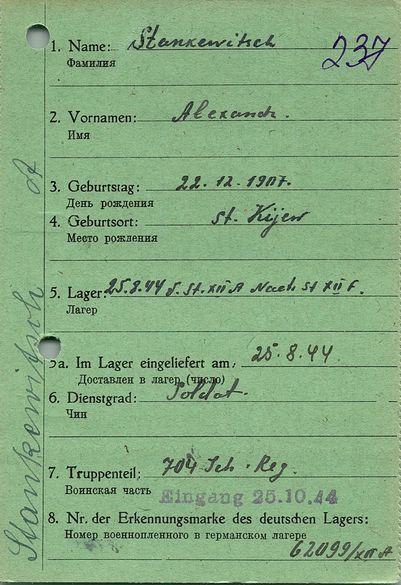 237
1. Name: Stankewitsch
Фамилия
2. Vornamen: Alexand.
Имя
3. Geburtstag: 22. 12. 1907.
День рождения
4. Geburtsort: St. Kijew
Место рождения
5. Lager: 25.8.44 v. St. XII A Nach St XII F.
Лагер
5a. Im Lager eingeliefert am: 25. 8. 44
Доставлен в лагер (число)
6. Dienstgrad: Soldat.
Чин
7. Truppenteil: 704 Sch. Reg.
Воинская часть Eingang 25.10.44
8. Nr. der Erkennungsmarke des deutschen Lagers:
Номер военнопленного в германском лагере
62099/XII A
Stankewitsch A